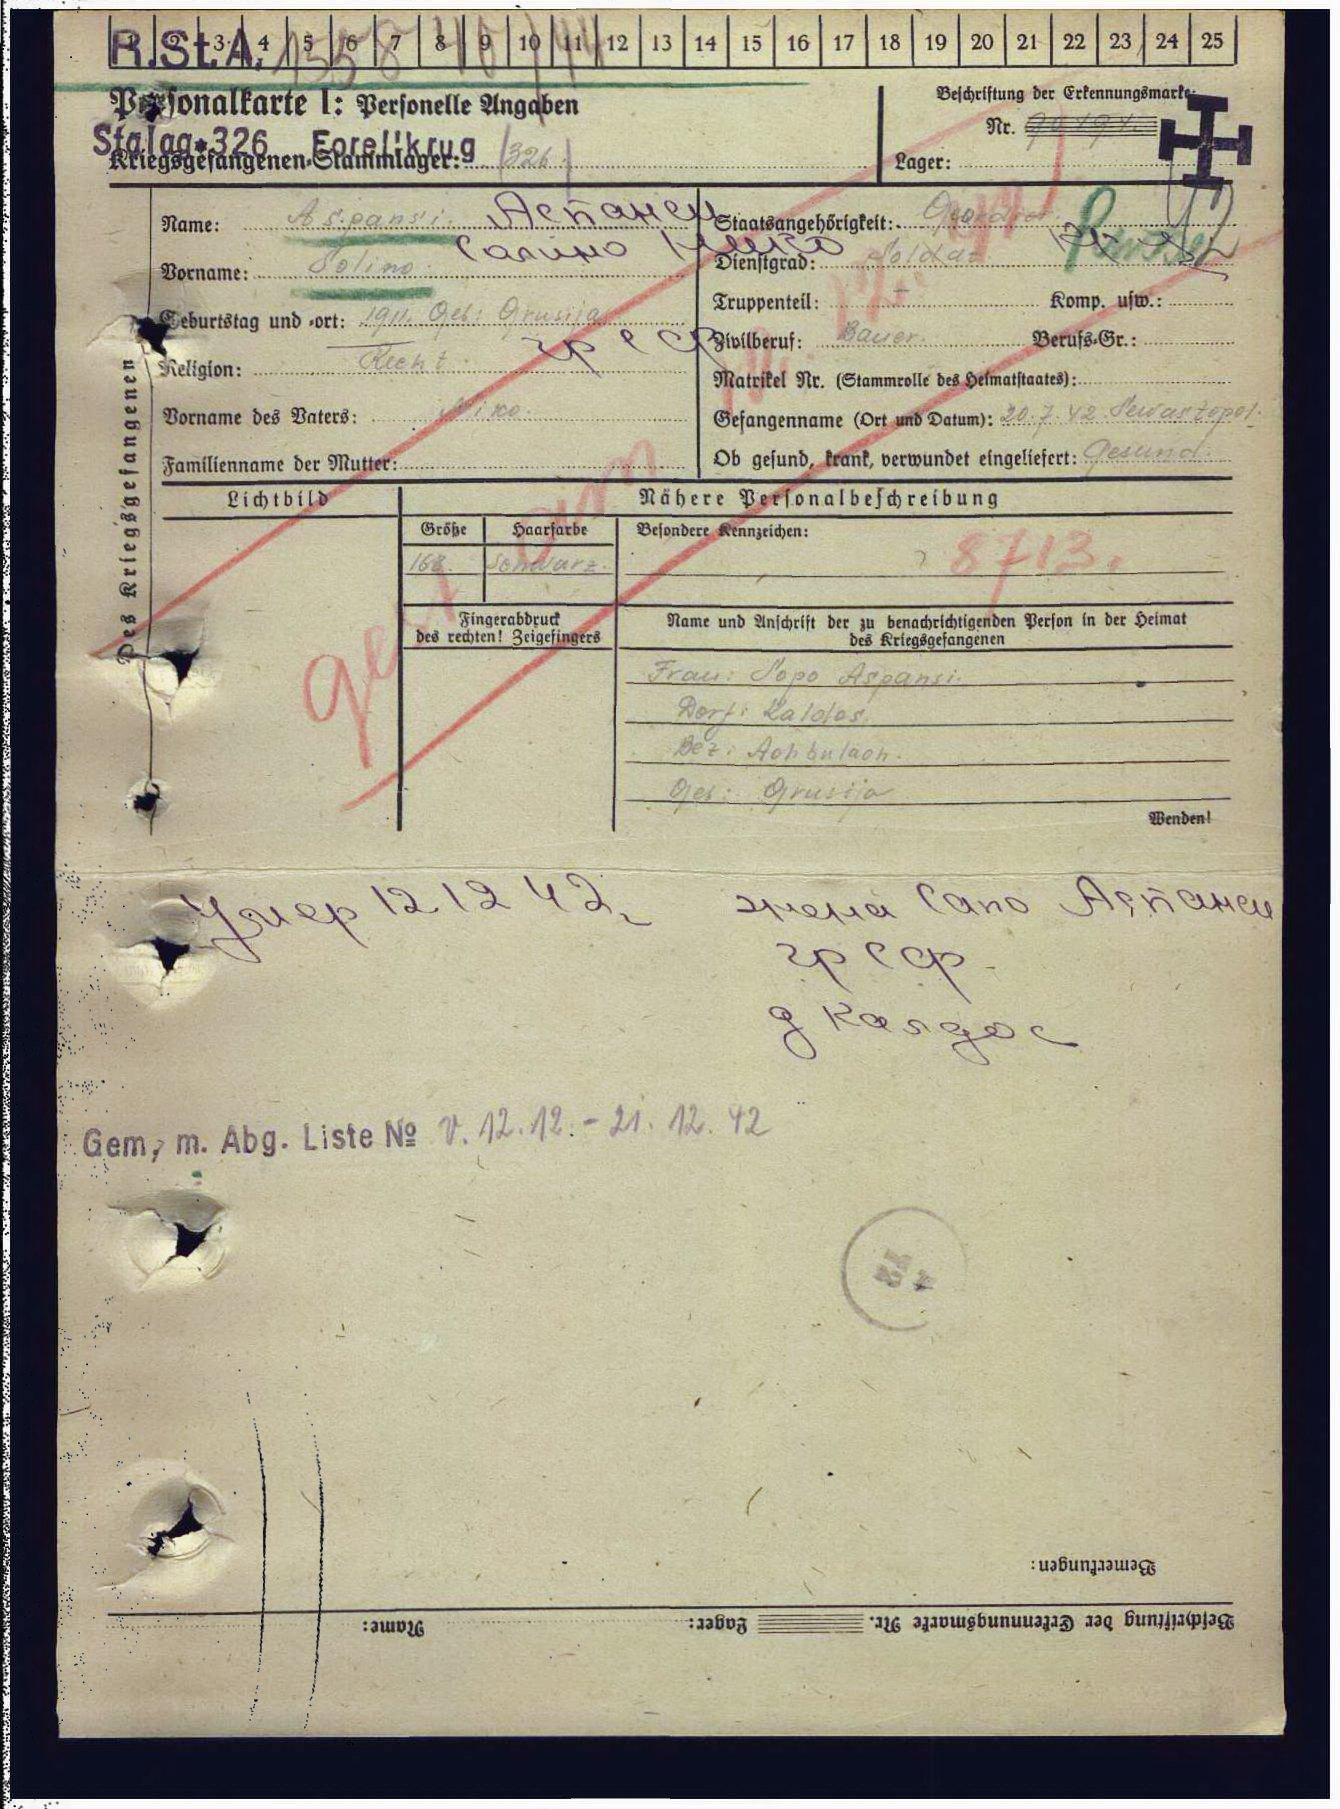 R.St.A. 1558 10/44
1 2 3 4 5 6 7 8 9 10 11 12 13 14 15 16 17 18 19 20 21 22 23 24 25
Personalkarte I: Personelle Angaben
Beschriftung der Erkennungsmarke:
Nr.
Stalag 326 Forellkrug
Kriegsgefangenen-Stammlager: 326.
Lager:
Des Kriegsgefangenen
Name: Aspansi. Аспанси
Vorname: Solino. Салино Нико
Geburtstag und -ort: 1911. Geb: Grusija
гр ССР
Religion: Recht.
Vorname des Vaters: Niko.
Familienname der Mutter:
Staatsangehörigkeit:
Dienstgrad: Soldat
Truppenteil: Komp. usw.:
Zivilberuf: Bauer. Berufs-Gr.:
Matrikel Nr. (Stammrolle des Heimatstaates):
Gefangenname (Ort und Datum): 20.7.42 Sewastopol.
Ob gesund, krank, verwundet eingeliefert: Gesund.
Lichtbild
Nähere Personalbeschreibung
Größe Haarfarbe Besondere Kennzeichen:
168. Schwarz.
8713.
Fingerabdruck
des rechten! Zeigefingers
Name und Anschrift der zu benachrichtigenden Person in der Heimat
des Kriegsgefangenen
Frau: Sopo Aspansi.
Dorf: Kaldos.
Bez: Achbulach.
Geb: Grusija
Wenden!
Умер 12 12 42 г
жена Сапо Аспанси
гр ССР
д Калдос
Gem. m. Abg. Liste No v. 12.12. - 21.12.42
Bemerkungen:
Beschriftung der Erkennungsmarke Nr. Lager: Name: